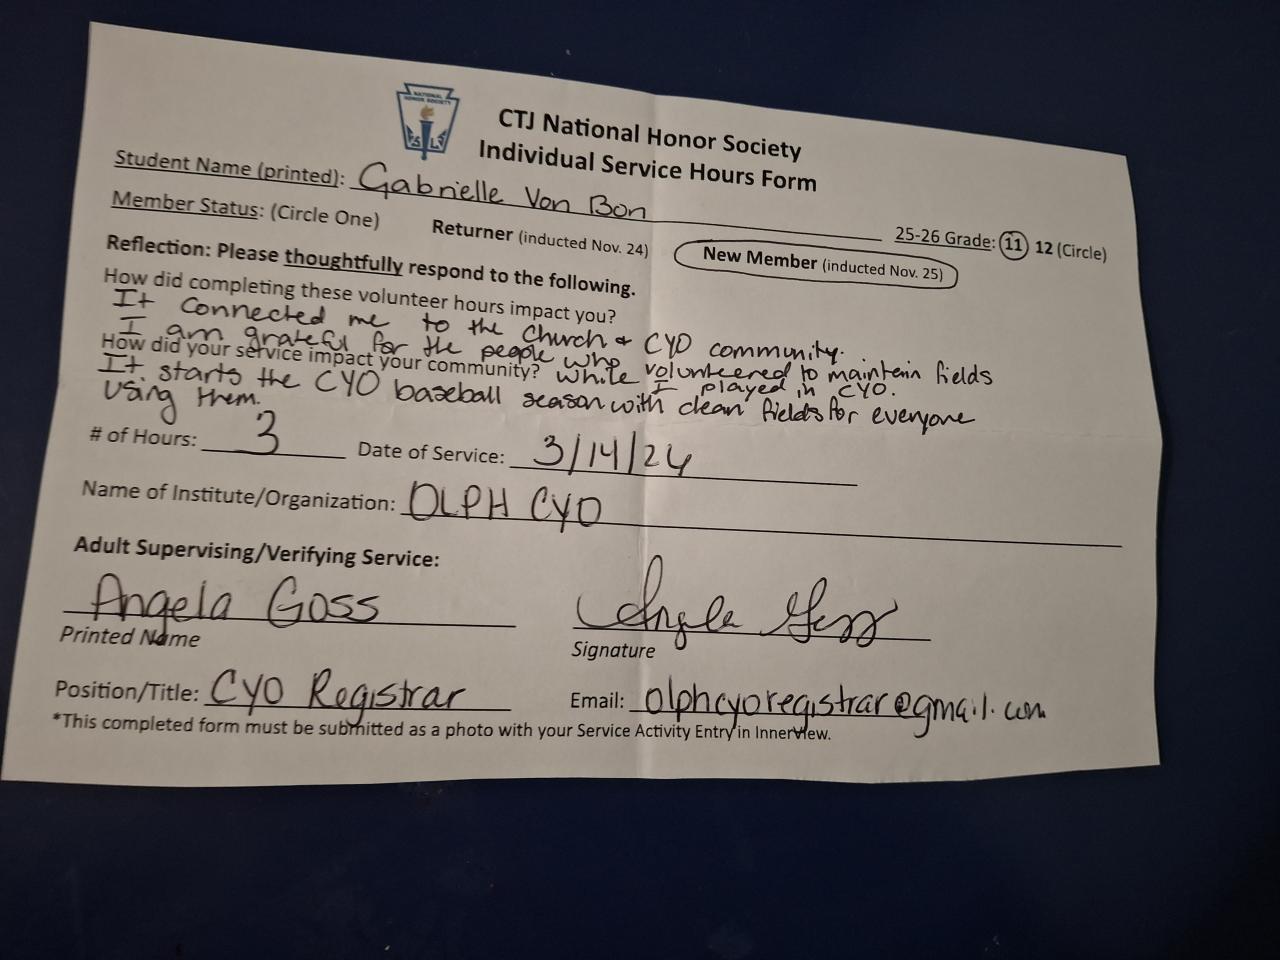 NATIONAL HONOR SOCIETY
CTJ National Honor Society
Individual Service Hours Form
Student Name (printed): Gabrielle Von Bon
Member Status: (Circle One) Returner (inducted Nov. 24) New Member (inducted Nov. 25) 25-26 Grade: 11 12 (Circle)
Reflection: Please thoughtfully respond to the following.
How did completing these volunteer hours impact you?
It connected me to the Church & CYO community.
I am grateful for the people who volunteered to maintain fields
while I played in CYO.
How did your service impact your community?
It starts the CYO baseball season with clean fields for everyone
using them.
# of Hours: 3 Date of Service: 3/14/24
Name of Institute/Organization: OLPH CYO
Adult Supervising/Verifying Service:
Angela Goss Angela Goss
Printed Name Signature
Position/Title: CYO Registrar Email: olphcyoregistrar@gmail.com
*This completed form must be submitted as a photo with your Service Activity Entry in InnerView.